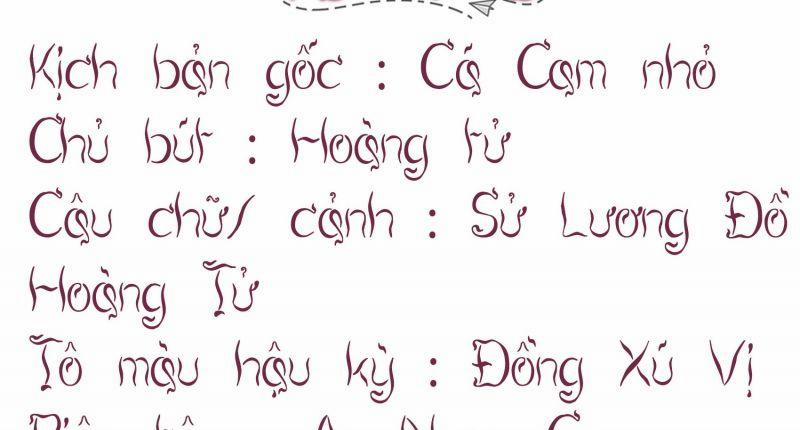 Kịch bản gốc : Cá Cam nhỏ
Chủ bút : Hoàng tử
Câu chữ/ cảnh : Sử Lương Đồ
Hoàng Tử
Tô màu hậu kỳ : Đồng Xú Vị